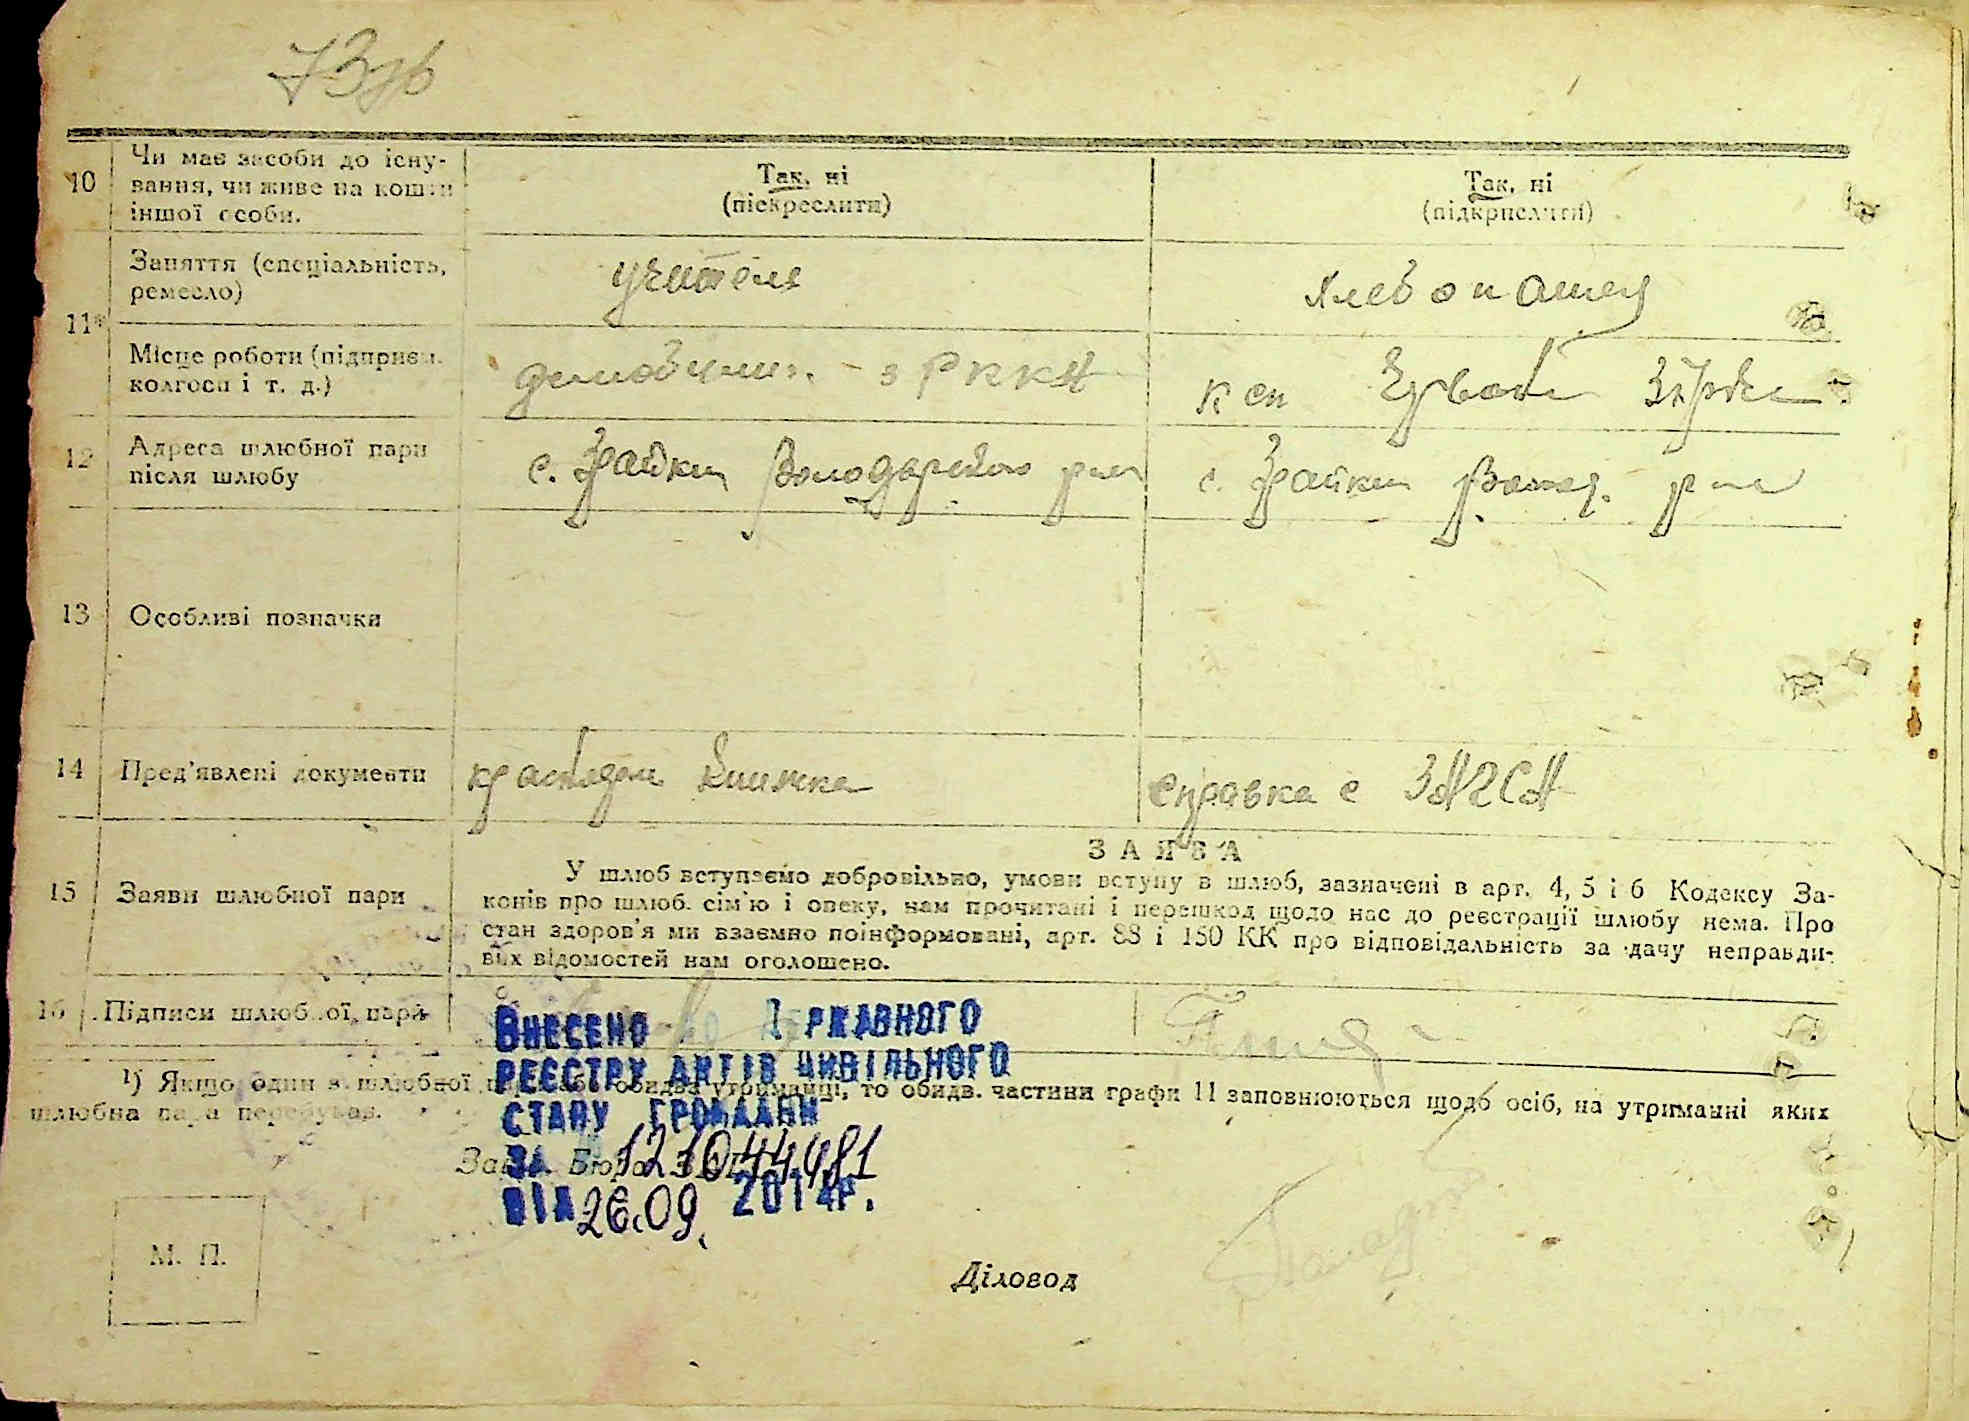 73зв
10 Чи має засоби до існу-
вання, чи живе на кошти
іншої особи.
Так, ні
(піскреслити)
Так, ні
(підкрислити)
11
Заняття (спеціальність,
ремесло)
учитель
хлебопашец
Місце роботи (підприєм.
колгосп і т. д.)
з РККА
12 Адреса шлюбної пари
після шлюбу
с. Зрайки Володарского р-на
с. Зрайки Волод. р-на
13 Особливі позначки
14 Пред'явлені документи
книжка
справка с ЗАГСА
15 Заяви шлюбної пари
ЗАЯВА
У шлюб вступаємо добровільно, умови вступу в шлюб, зазначені в арт. 4, 5 і 6 Кодексу За-
конів про шлюб. сім'ю і опеку, нам прочитані і перешкод щодо нас до реєстрації шлюбу нема. Про
стан здоров'я ми взаємно поінформовані, арт. 88 і 150 КК про відповідальність за дачу неправди-
вих відомостей нам оголошено.
16 Підписи шлюбної пари
ВНЕСЕНО ДО ДЕРЖАВНОГО
РЕЄСТРУ АКТІВ ЦИВІЛЬНОГО
СТАНУ ГРОМАДЯН
ЗА 121044481
ВІД 26.09. 2014р.
¹) Якщо один з шлюбної пари або обидва утриманці, то обидв. частини графи 11 заповнюються щодо осіб, на утриманні яких
шлюбна пара перебуває.
Зав. Бюра
М. П.
Діловод